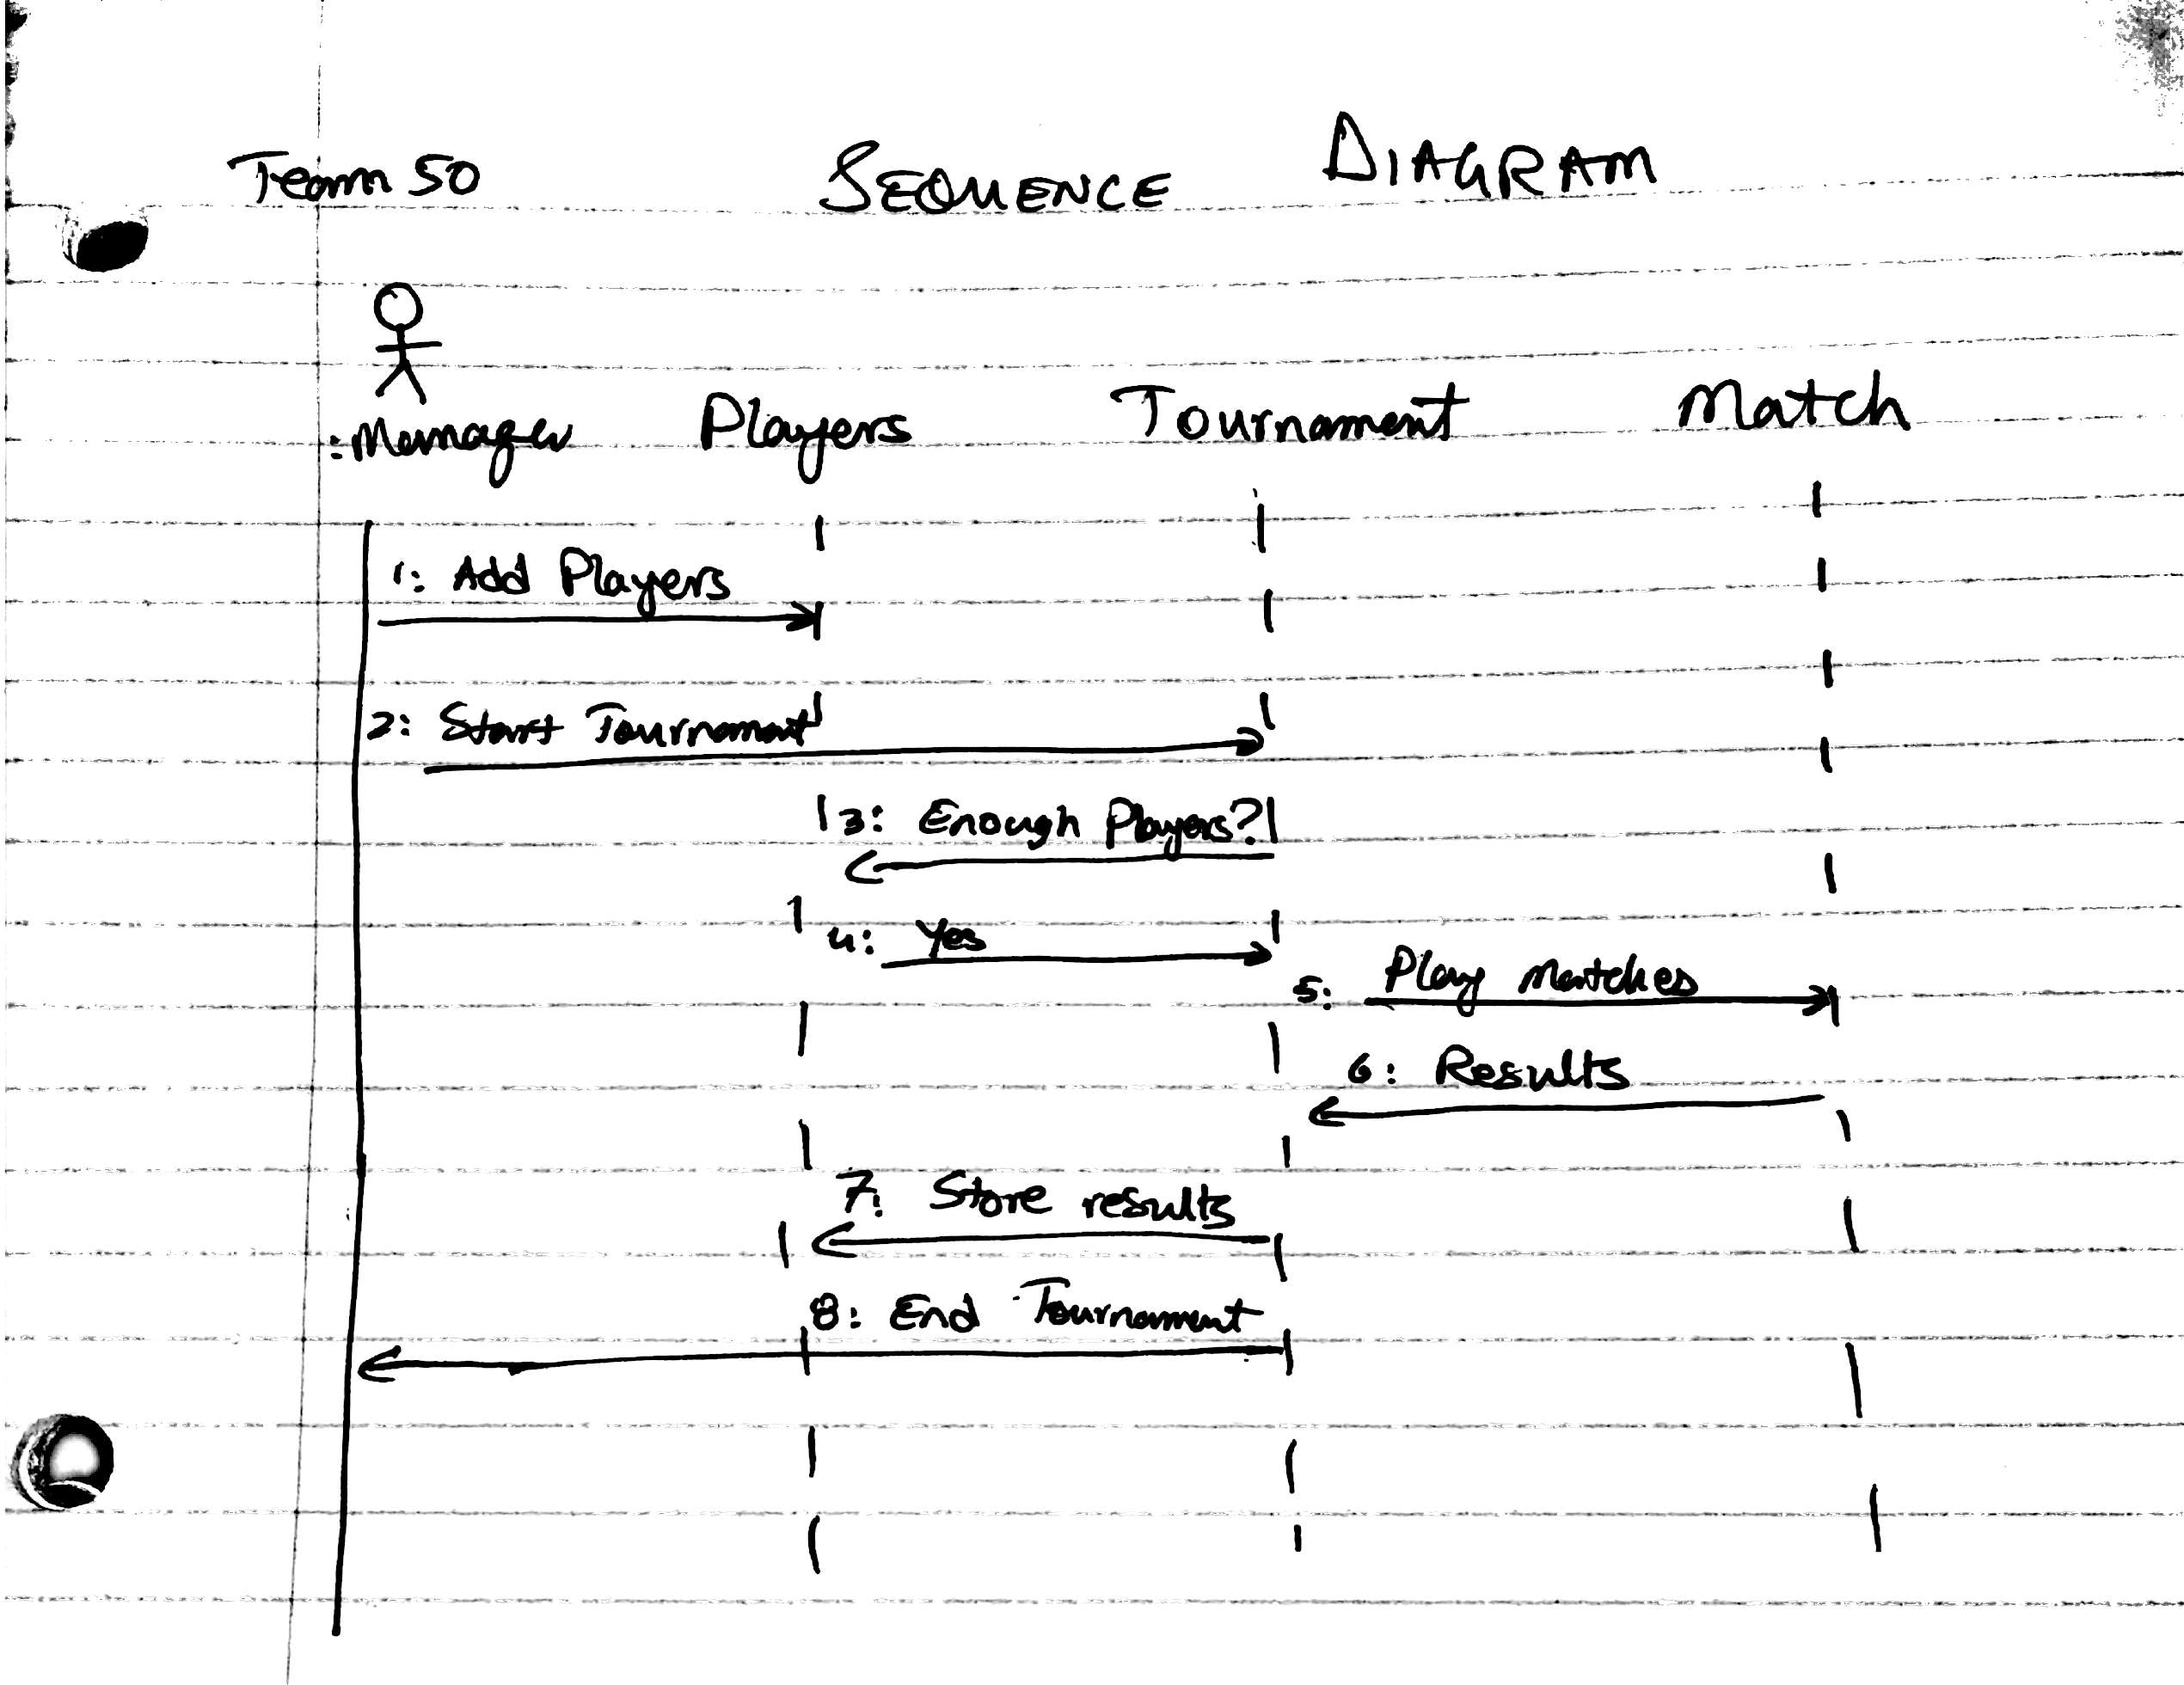 Team 50 SEQUENCE DIAGRAM
:Manager Players Tournament Match
1: Add Players
2: Start Tournament
3: Enough Players?
4: Yes
5: Play Matches
6: Results
7: Store results
8: End Tournament